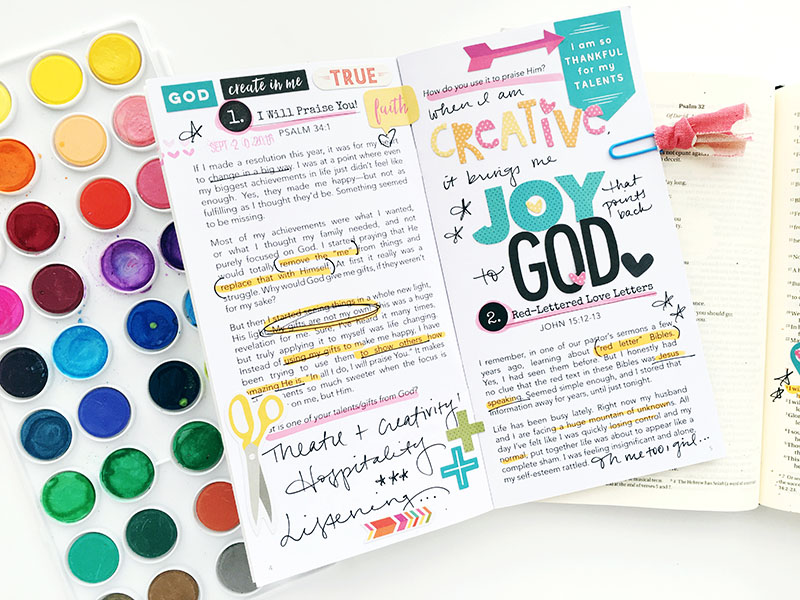 GOD create in me TRUE
1. I Will Praise You!
PSALM 34:1
faith
SEPT 2
If I made a resolution this year, it was for my
to change in a big way. I was at a point where even
my biggest achievements in life just didn't feel like
enough. Yes, they made me happy—but not as
fulfilling as I thought they'd be. Something seemed
to be missing.
Most of my achievements were what I wanted,
or what I thought my family needed, and not
purely focused on God. I started praying that He
would totally remove the "me" from things and
replace that with Himself. At first it really was a
struggle. Why would God give me gifts, if they weren't
for my sake?
But then I started seeing things in a whole new light,
His light. My gifts are not my own! This was a huge
revelation for me. Sure, I've heard it many times,
but truly applying it to myself was life changing.
Instead of using my gifts to make me happy, I have
been trying to use them to show others how
amazing He is. "In all I do, I will praise You." It makes
ents so much sweeter when the focus is
on me, but Him.
at is one of your talents/gifts from God?
Theatre + Creativity!
Hospitality
Listening...
4
I am so
THANKFUL
for my
TALENTS
How do you use it to praise Him?
when I am
CREATIVE,
it brings me
JOY that
points
back
to GOD
2. Red-Lettered Love Letters
JOHN 15:12-13
I remember, in one of our pastor's sermons a few
years ago, learning about "red letter" Bibles.
Yes, I had seen them before. But I honestly had
no clue that the red text in these Bibles was Jesus
speaking. Seemed simple enough, and I stored that
information away for years, until just tonight.
Life has been busy lately. Right now my husband
and I are facing a huge mountain of unknowns. All
day I've felt like I was quickly losing control and my
normal, put together life was about to appear like a
complete sham. I was feeling insignificant and alone,
my self-esteem rattled. Oh me too, girl...
Psalm 32